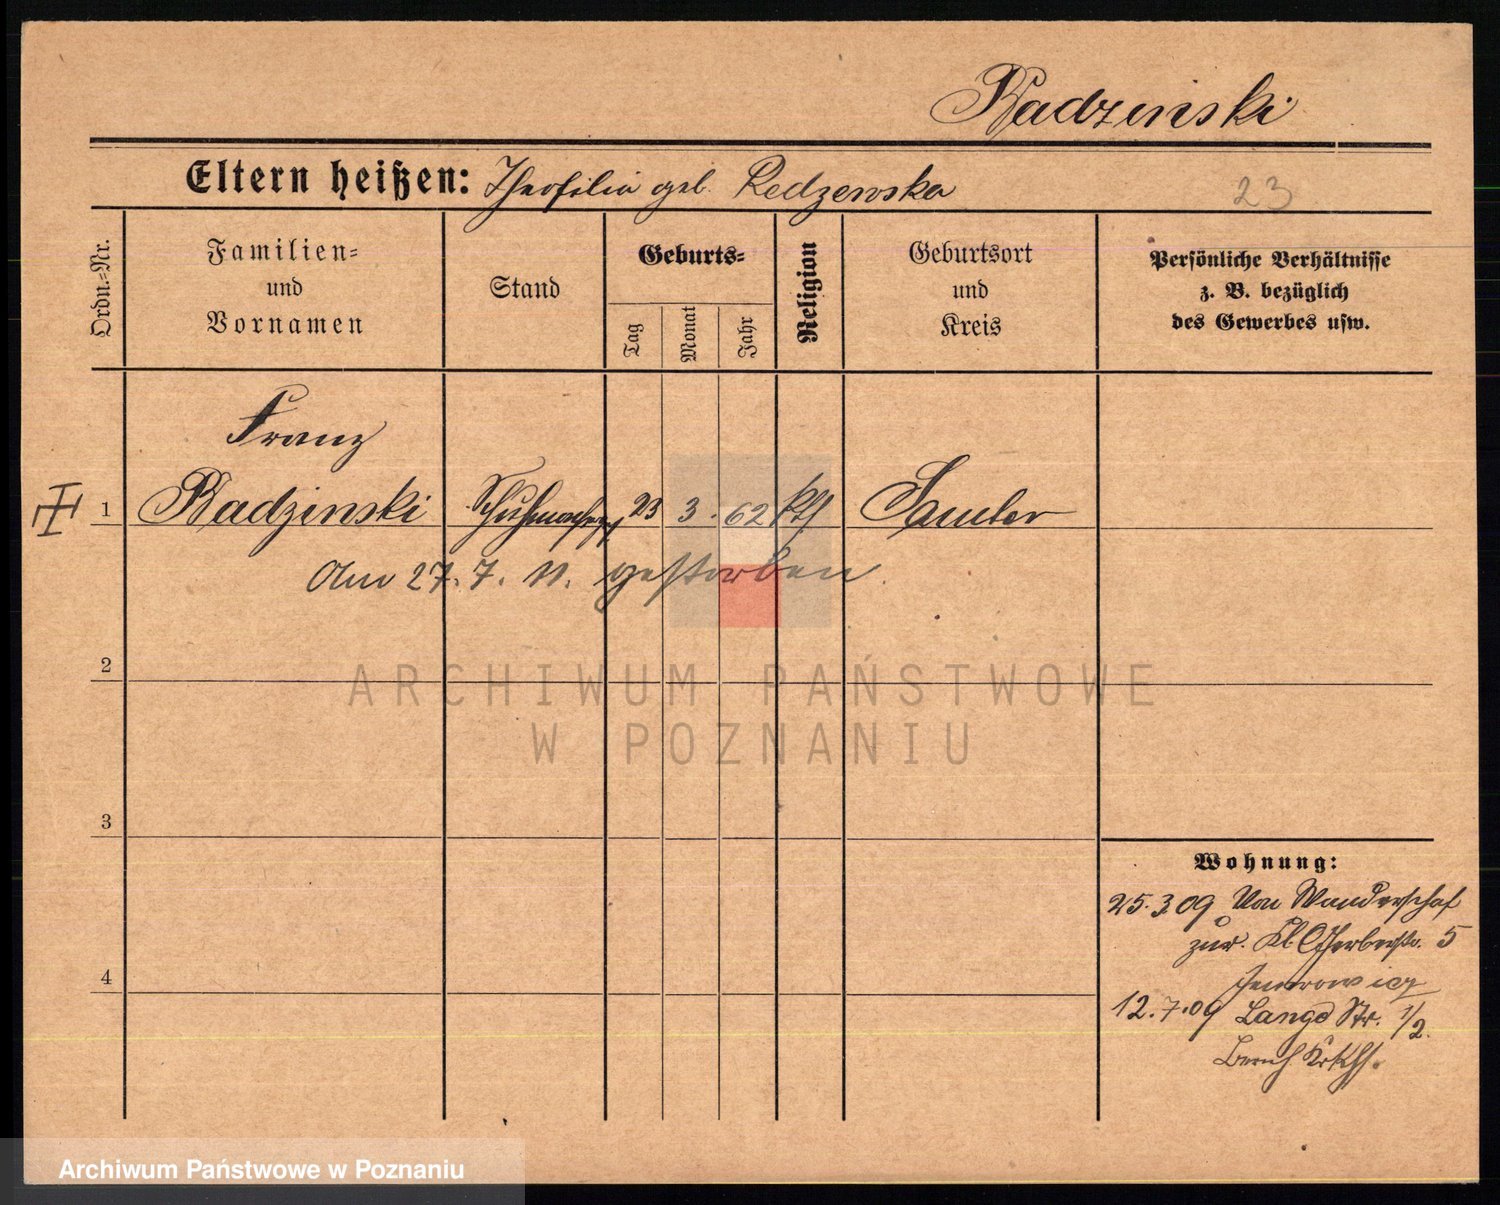 Radzinski
Eltern heißen: Theofilia geb. Redzewska
23
Ordn.-Nr.
Familien-
und
Vornamen
Stand
Geburts-
Tag
Monat
Jahr
Religion
Geburtsort
und
Kreis
Persönliche Verhältnisse
z. B. bezüglich
des Gewerbes usw.
Franz
1 Radzinski Schuhmacher 23 3. 62 kth Samter
Am 27. 7. 11. gestorben.
2
3
4
Wohnung:
25.3.09 Von Wanderschaf
zur. Kl. Gerberstr. 5
12.7.09 Lange Str. 1/2.
ARCHIWUM PAŃSTWOWE
W POZNANIU
Archiwum Państwowe w Poznaniu